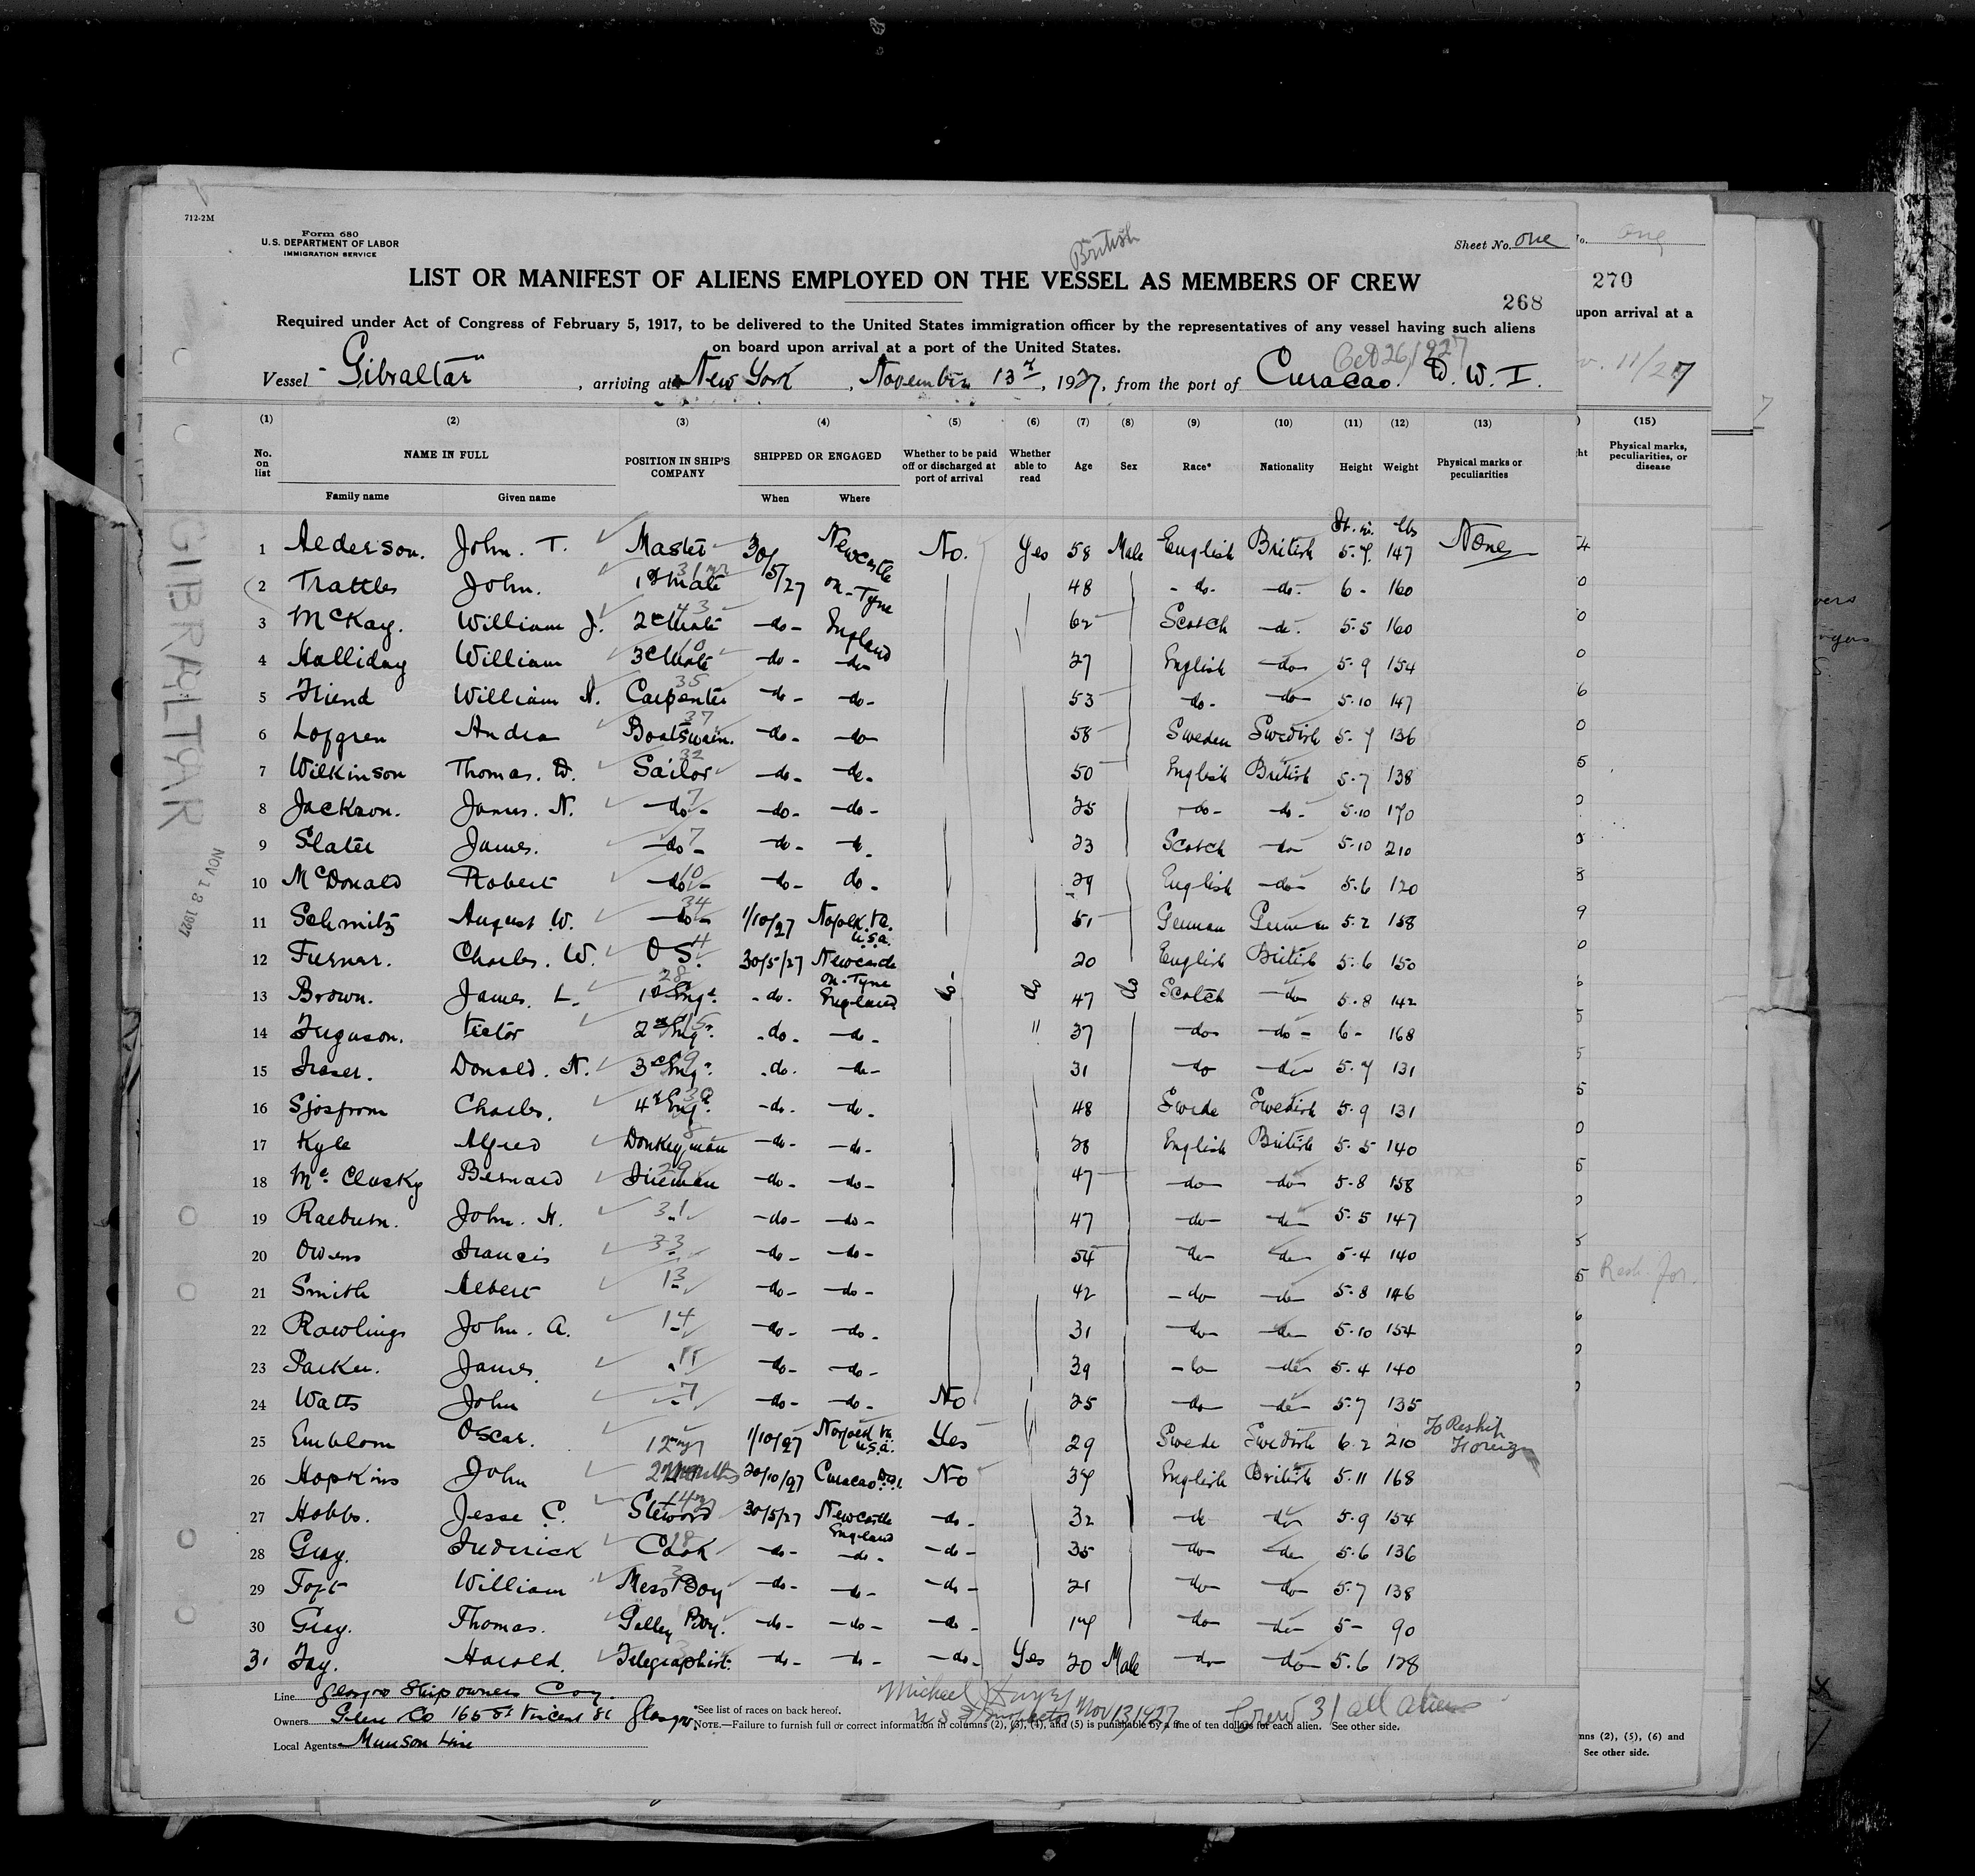 712-2M
Form 680
U.S. DEPARTMENT OF LABOR
IMMIGRATION SERVICE
British
Sheet No. One
LIST OR MANIFEST OF ALIENS EMPLOYED ON THE VESSEL AS MEMBERS OF CREW
268
Required under Act of Congress of February 5, 1917, to be delivered to the United States immigration officer by the representatives of any vessel having such aliens
on board upon arrival at a port of the United States.
Oct 26/927
Vessel "Gibraltar", arriving at New York, November 13th, 1927, from the port of Curacao. D. W. I.
(1) (2) (3) (4) (5) (6) (7) (8) (9) (10) (11) (12) (13)
No. on list NAME IN FULL POSITION IN SHIP'S COMPANY SHIPPED OR ENGAGED Whether to be paid off or discharged at port of arrival Whether able to read Age Sex Race* Nationality Height Weight Physical marks or peculiarities
Family name Given name When Where
1 Alderson. John. T. Master 30/5/27 Newcastle on-Tyne England No. Yes 58 Male English British 5.7. 147 None
2 Trattles John. 1st Mate 48 -do- -do- 6- 160
3 McKay. William J. 2d Mate -do- 62 Scotch -do- 5.5 160
4 Halliday William 3d Mate -do- -do- 27 English -do- 5.9 154
5 Friend William A. Carpenter -do- -do- 53 -do- -do- 5.10 147
6 Lofgren Andro Boatswain. -do- -do- 58 Sweden Swedish 5.7 136
7 Wilkinson Thomas. W. Sailor -do- -do- 50 English British 5.7 138
8 Jackson. James. N. -do- -do- -do- 25 -do- -do- 5.10 170
9 Slater James. -do- -do- -do- 23 Scotch -do- 5.10 210
10 McDonald Robert -do- -do- do- 29 English -do- 5.6 120
11 Schmitz August W. -do- 1/10/27 Norfolk. Va. U.S.A. 51 German German 5.2 158
12 Furnar. Charles. W. O S. 30/5/27 Newcastle on-Tyne England 20 English British 5.6 150
13 Brown. James. L. 1st Engr. -do- do do 47 do Scotch -do- 5.8 142
14 Ferguson. Victor 2nd Engr. -do- -do- " 37 -do- -do- 6- 168
15 Fraser. Donald. N. 3d Engr. -do- -do- 31 -do- -do- 5.7 131
16 Sjostrom Charles. 4th Engr. -do- -do- 48 Swede Swedish 5.9 131
17 Kyle Alfred Donkeyman -do- -do- 28 English British 5.5 140
18 Mc Clusky Bernard Fireman -do- -do- 47 -do- -do- 5.8 158
19 Raeburn. John. H. -do- -do- 47 -do- -do- 5.5 147
20 Owens Francis -do- -do- 54 -do- -do- 5.4 140
21 Smith Albert -do- -do- 42 -do- -do- 5.8 146
22 Rawlings John. A. -do- -do- 31 -do- -do- 5.10 154
23 Parker. James. -do- -do- 39 -do- -do- 5.4 140
24 Watts John -do- -do- No 25 -do- -do- 5.7 135
25 Emblom Oscar. 1/10/27 Norfolk Va. U.S.A. Yes 29 Swede Swedish 6.2 210 To Reship Foreign
26 Hopkins John 20/10/27 Curacao D.W.I. No 37 English British 5.11 168
27 Hobbs. Jesse C. Steward 30/5/27 Newcastle England -do- 32 -do- -do- 5.9 154
28 Gray. Frederick Cook -do- -do- -do- 35 -do- -do- 5.6 136
29 Toft William Mess Boy -do- -do- -do- 21 -do- -do- 5.7 138
30 Gray. Thomas. Galley Boy. -do- -do- -do- 17 -do- -do- 5- 90
31 Fay. Harold. Telegraphist. -do- -do- -do- Yes 20 Male -do- -do- 5.6 128
Line Glasgow Shipowners Coy.
Owners Glen Co 165 St Vincent St Glasgow
Local Agents Munson Line
*See list of races on back hereof.
NOTE.—Failure to furnish full or correct information in columns (2), (3), (4), and (5) is punishable by a fine of ten dollars for each alien. See other side.
Michael
U S Inspector Nov 13/1927
Crew 31 all aliens
GIBRALTAR
NOV 13 1927
One
270
upon arrival at a
11/27
(15)
Physical marks, peculiarities, or disease
mns (2), (5), (6) and
See other side.